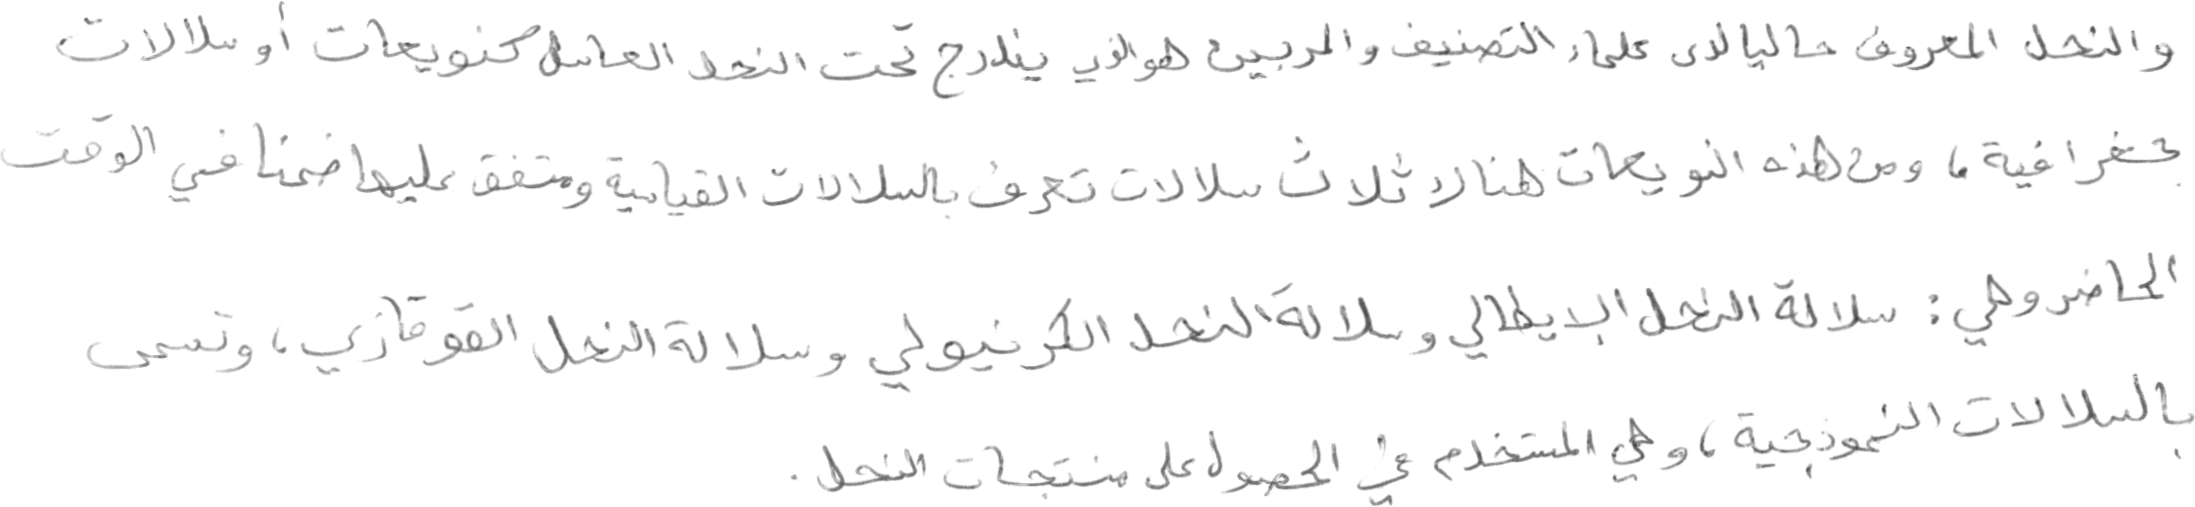 والنحل المعروف حاليا لدى علماء التصنيف والمربين هو الذي يندرج تحت النحل العاسل كنويعات أو سلالات
جغرافية، ومن هذه النويعات هناك ثلاث سلالات تعرف بالسلالات القياسية ومتفق عليها ضمنا في الوقت
الحاضر وهي: سلالة النحل الإيطالي وسلالة النحل الكرنيولي وسلالة النحل القوقازي، وتسمى
بالسلالات النموذجية، وهي المستخدم في الحصول على منتجات النحل.